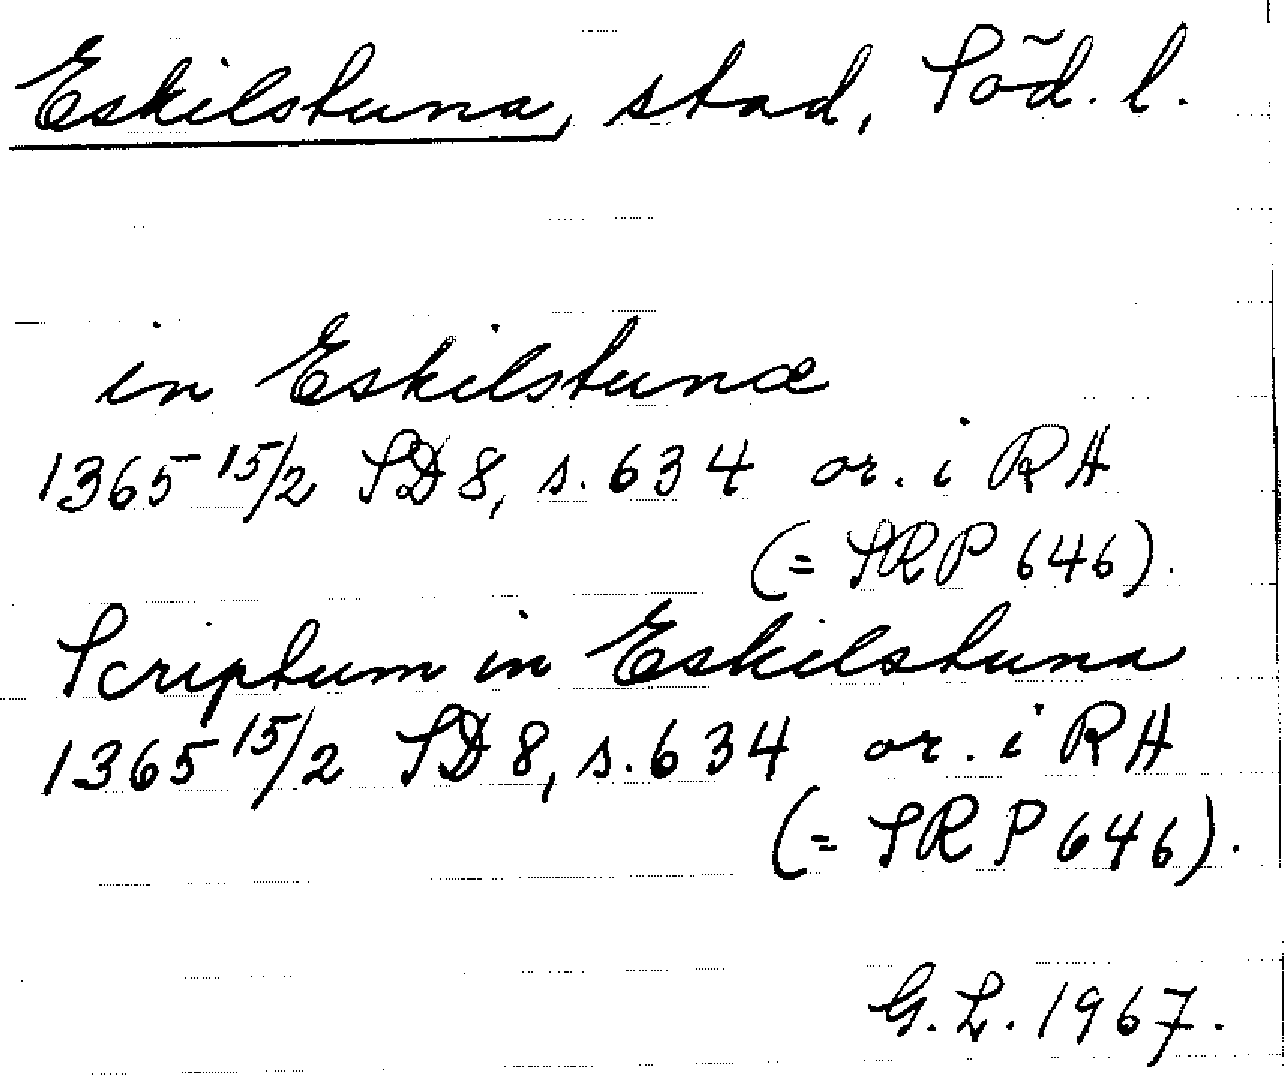 Eskilstuna, stad, Söd. l.
in Eskilstunæ
1365 15/2 SD 8, s. 634 or. i RA
(= SRP 646).
Scriptum in Eskilstuna
1365 15/2 SD 8, s. 634 or. i RA
(= SRP 646).
G. L. 1967.